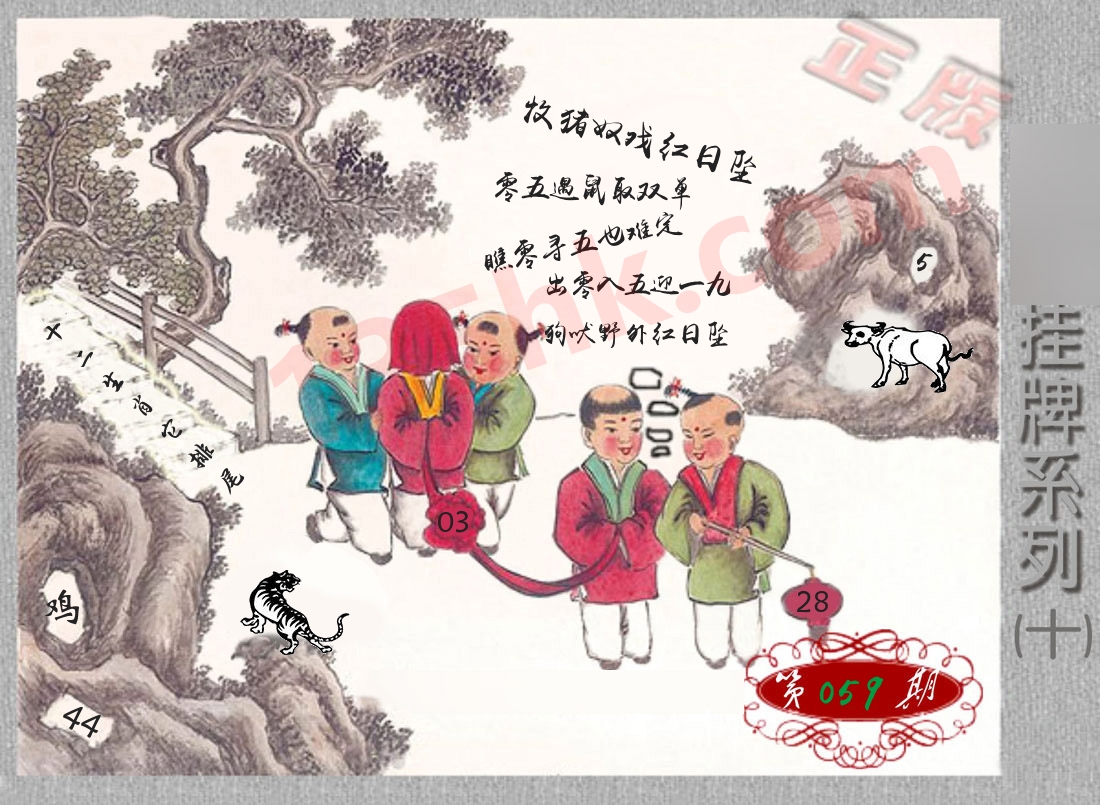 正版
牧猪奴戏红日坠
零五遇鼠取双单
瞧零寻五也难定
出零八五迎一九
狗吠野外红日坠
5
十二生肖它排尾
03
28
鸡
44
第059期
挂牌系列(十)